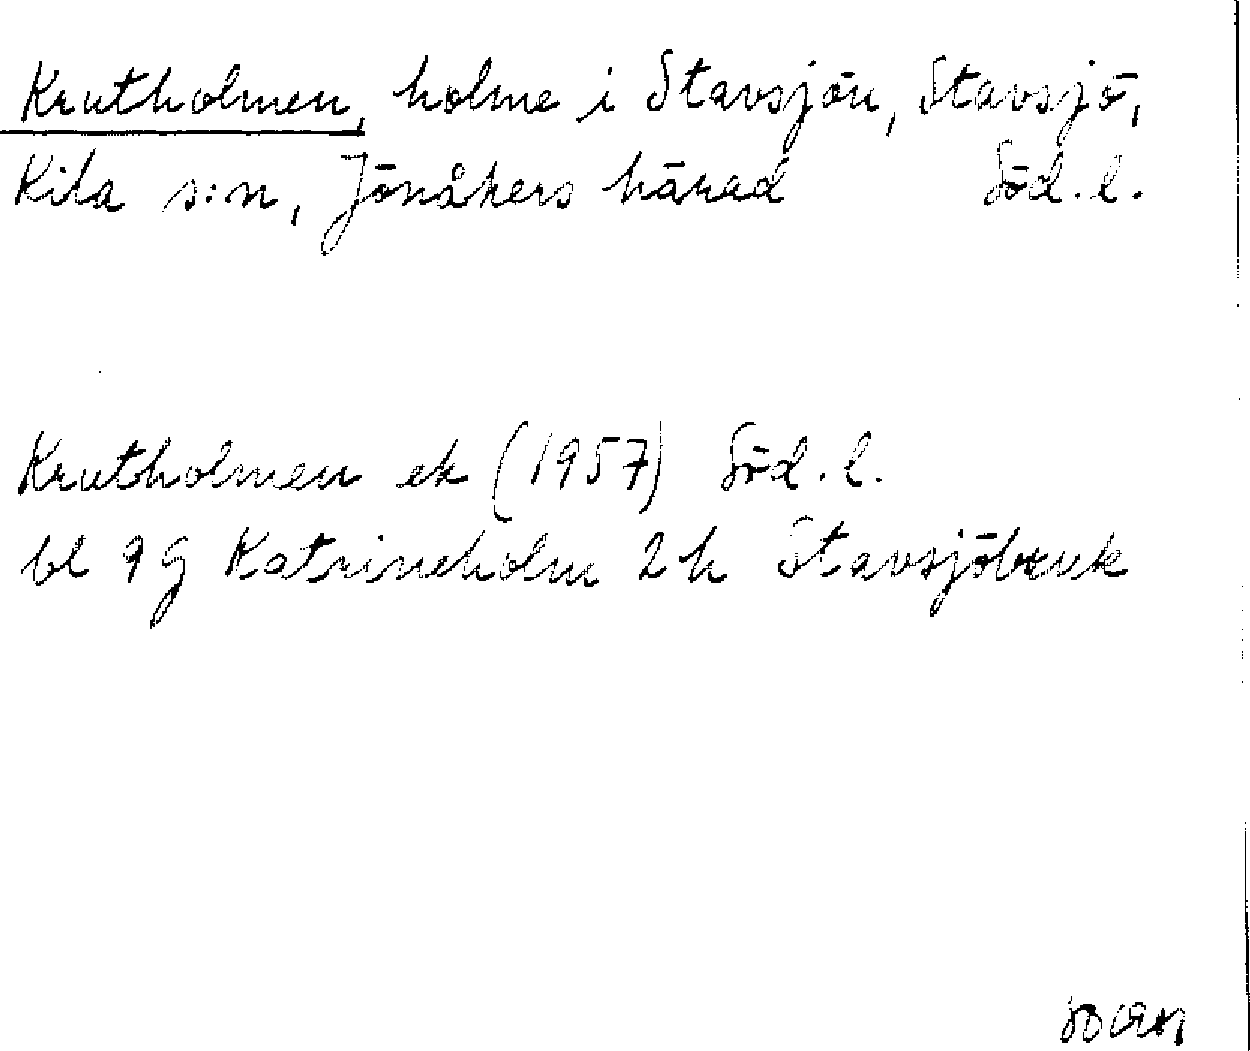 Krutholmen, holme i Stavsjön, Stavsjö,
Kila s:n, Jönåkers härad Söd. l.
Krutholmen ek (1957) Söd. l.
bl 9 G Katrineholm 2 h Stavsjöbruk